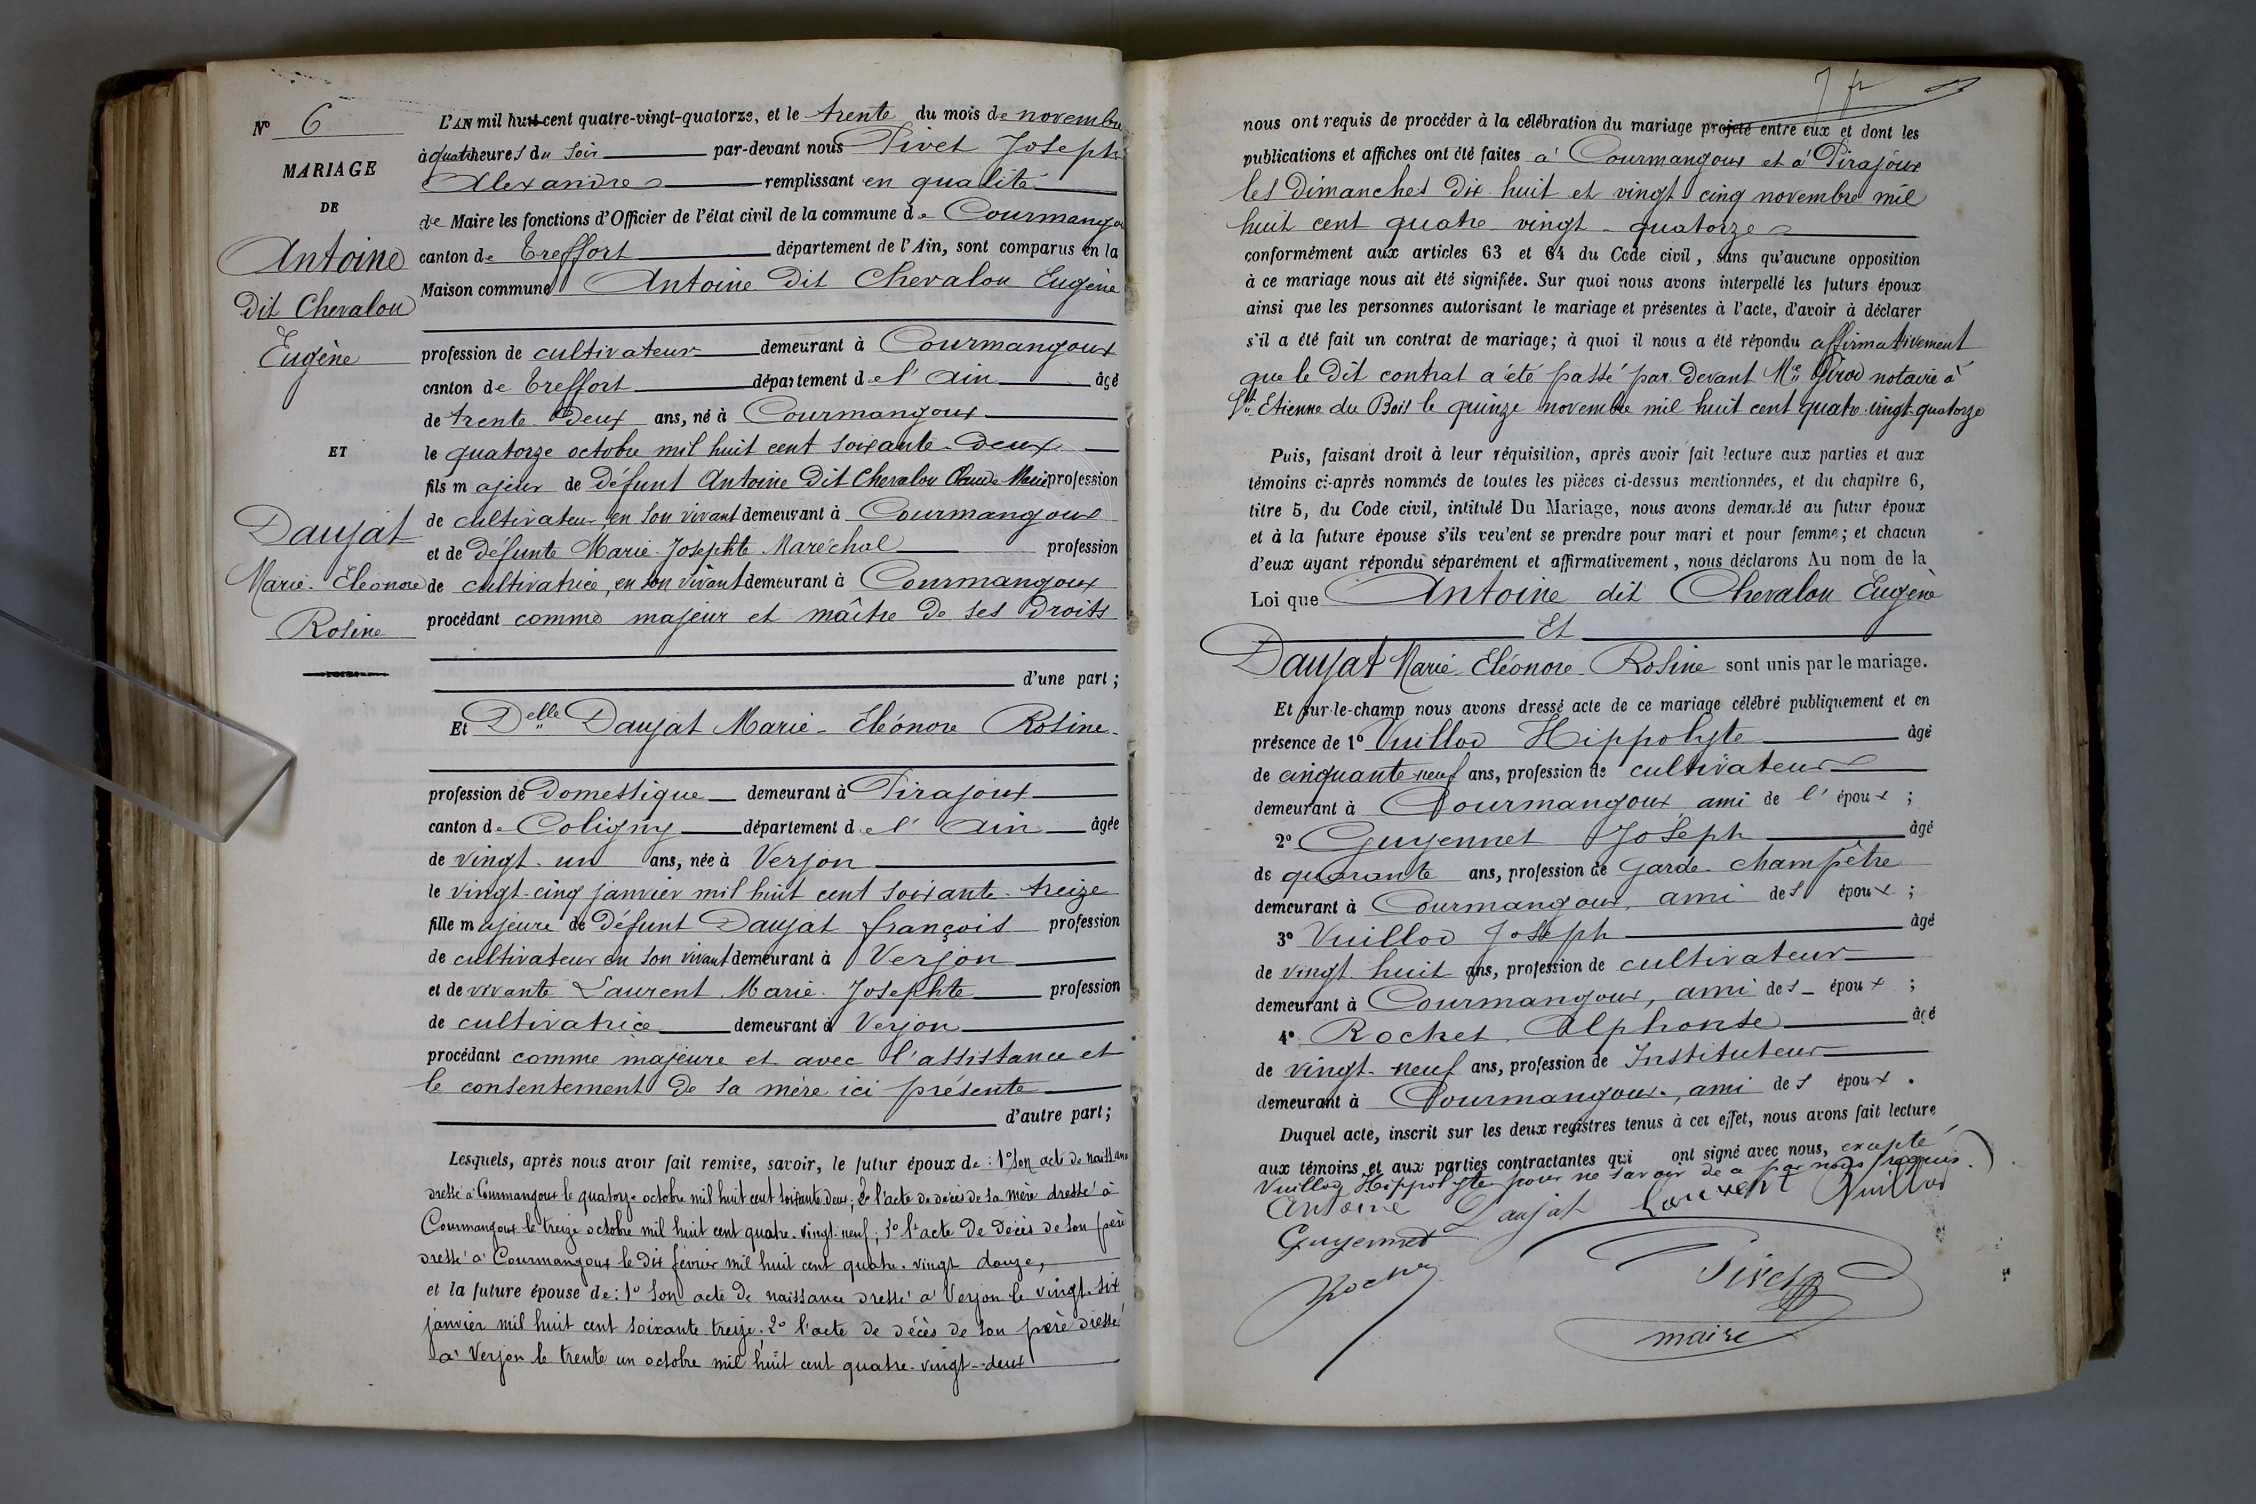 N° 6
MARIAGE
DE
Antoine
dit Chevalou
Eugène
ET
Daujat
Marie-Eléonore
Rosine
L'AN mil huit cent quatre-vingt-quatorze, et le trente du mois de novembre
à quatre heures du soir par-devant nous Pivet Joseph
Alexandre remplissant en qualité
de Maire les fonctions d'Officier de l'état civil de la commune de Courmangoux
canton de Treffort département de l'Ain, sont comparus en la
Maison commune Antoine dit Chevalou Eugène
profession de cultivateur demeurant à Courmangoux
canton de Treffort département de l'Ain âgé
de trente-deux ans, né à Courmangoux
le quatorze octobre mil huit cent soixante-deux
fils majeur de défunt Antoine dit Chevalou Claude Marie profession
de cultivateur en son vivant demeurant à Courmangoux
et de défunte Marie-Josephte Maréchal profession
de cultivatrice, en son vivant demeurant à Courmangoux
procédant comme majeur et maître de ses droits
d'une part ;
Et Delle Daujat Marie-Eléonore Rosine
profession de domestique demeurant à Pirajoux
canton de Coligny département de l'Ain âgée
de vingt-un ans, née à Verjon
le vingt-cinq janvier mil huit cent soixante-treize
fille majeure de défunt Daujat françois profession
de cultivateur en son vivant demeurant à Verjon
et de vivante Laurent Marie-Josephte profession
de cultivatrice demeurant à Verjon
procédant comme majeure et avec l'assistance et
le consentement de sa mère ici présente
d'autre part ;
Lesquels, après nous avoir fait remise, savoir, le futur époux de : 1° son acte de naissance
dressé à Courmangoux le quatorze octobre mil huit cent soixante deux ; 2° l'acte de décès de sa mère dressé à
Courmangoux le treize octobre mil huit cent quatre-vingt-neuf ; 3° l'acte de décès de son père
dressé à Courmangoux le dix février mil huit cent quatre-vingt douze,
et la future épouse de : 1° son acte de naissance dressé à Verjon le vingt-six
janvier mil huit cent soixante-treize ; 2° l'acte de décès de son père dressé
à Verjon le trente un octobre mil huit cent quatre-vingt-deux
7 fr
nous ont requis de procéder à la célébration du mariage projeté entre eux et dont les
publications et affiches ont été faites à Courmangoux et à Pirajoux
les dimanches dix-huit et vingt-cinq novembre mil
huit cent quatre-vingt-quatorze
conformément aux articles 63 et 64 du Code civil, sans qu'aucune opposition
à ce mariage nous ait été signifiée. Sur quoi nous avons interpellé les futurs époux
ainsi que les personnes autorisant le mariage et présentes à l'acte, d'avoir à déclarer
s'il a été fait un contrat de mariage ; à quoi il nous a été répondu affirmativement
que le dit contrat a été passé par devant Me Girod notaire à
St Etienne du Bois le quinze novembre mil huit cent quatre-vingt-quatorze
Puis, faisant droit à leur réquisition, après avoir fait lecture aux parties et aux
témoins ci-après nommés de toutes les pièces ci-dessus mentionnées, et du chapitre 6,
titre 5, du Code civil, intitulé Du Mariage, nous avons demandé au futur époux
et à la future épouse s'ils veulent se prendre pour mari et pour femme ; et chacun
d'eux ayant répondu séparément et affirmativement, nous déclarons Au nom de la
Loi que Antoine dit Chevalou Eugène
Et
Daujat Marie-Eléonore-Rosine sont unis par le mariage.
Et sur-le-champ nous avons dressé acte de ce mariage célébré publiquement et en
présence de 1° Vuillod Hippolyte âgé
de cinquante-neuf ans, profession de cultivateur
demeurant à Courmangoux ami de l'époux ;
2° Guyennet Joseph âgé
de quarante ans, profession de garde-champêtre
demeurant à Courmangoux, ami des époux ;
3° Vuillod Joseph âgé
de vingt-huit ans, profession de cultivateur
demeurant à Courmangoux, ami des époux ;
4° Rochet Alphonse âgé
de vingt-neuf ans, profession de Instituteur
demeurant à Courmangoux, ami des époux.
Duquel acte, inscrit sur les deux registres tenus à cet effet, nous avons fait lecture
aux témoins et aux parties contractantes qui ont signé avec nous, excepté
Vuillod Hippolyte pour ne savoir de ce par nous requis.
Antoine Daujat Laurent Vuillod
Guyennet
Rochet
Pivet
maire